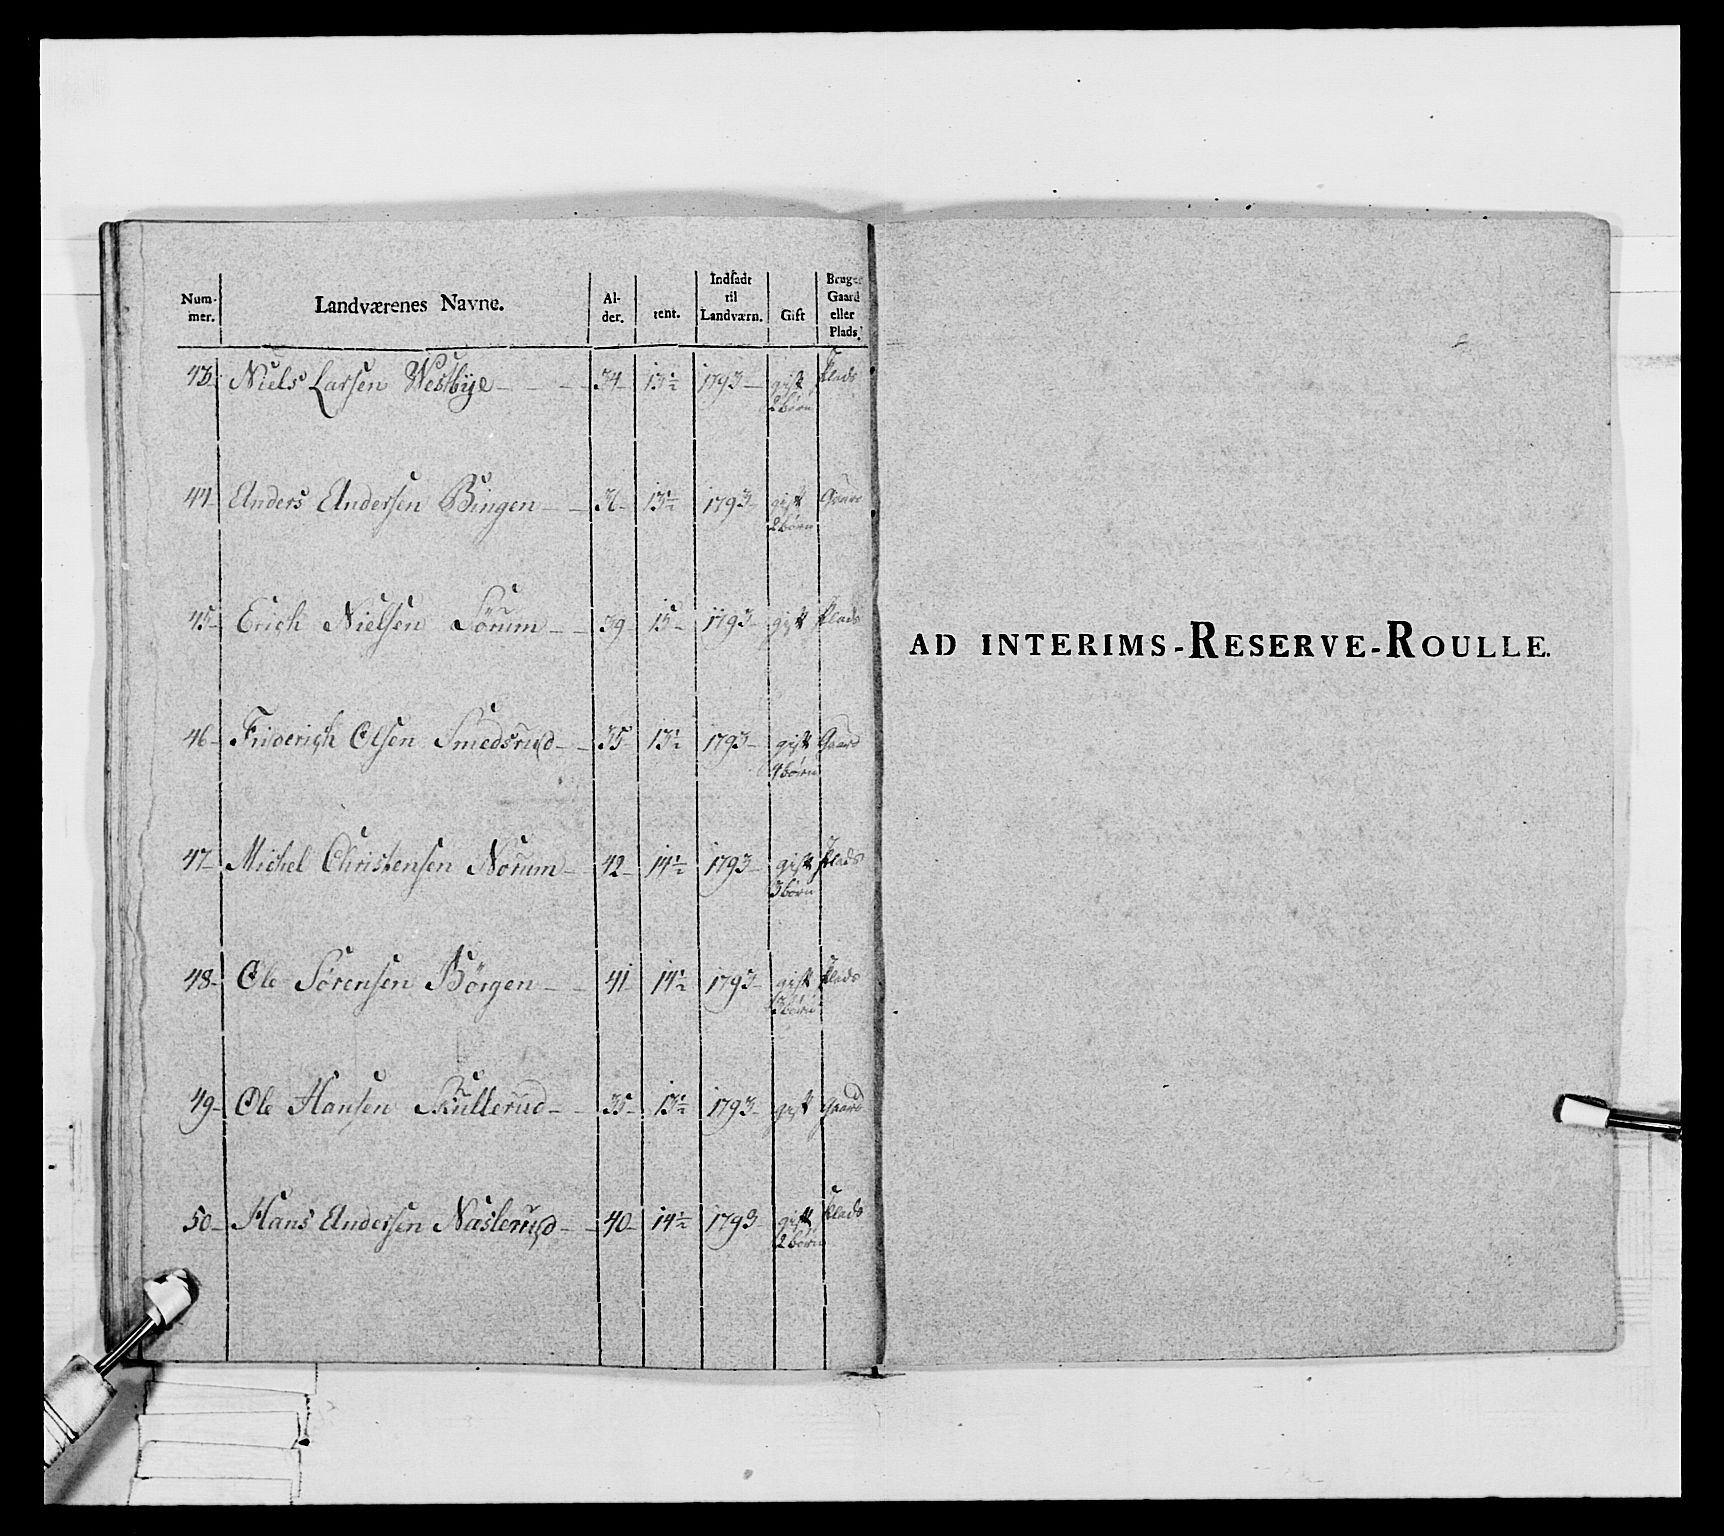 Num-
mer.
Landværenes Navne.
Al-
der.
tent.
Indsadt
til
Landværn.
Gift
Bruger
Gaard
eller
Plads.
43 Niels Larsen Westbye 34 13½ 1793 gift Plads
2 børn
44 Anders Andersen Bingen 36 13½ 1793 gift Gaard
2 børn
45 Erich Nielsen Sørum 39 15 1793 gift Plads
46 Friderich Olsen Smedsrud 35 13½ 1793 gift Gaard
4 børn
47 Michel Christensen Norum 42 14½ 1793 gift Plads
3 børn
48 Ole Sørensen Børgen 41 14½ 1793 gift Plads
3 børn
49 Ole Hansen Kullerud 35 13½ 1793 gift Gaard
50 Hans Andersen Naslerud 40 14½ 1793 gift Plads
2 børn
AD INTERIMS-RESERVE-ROULLE.